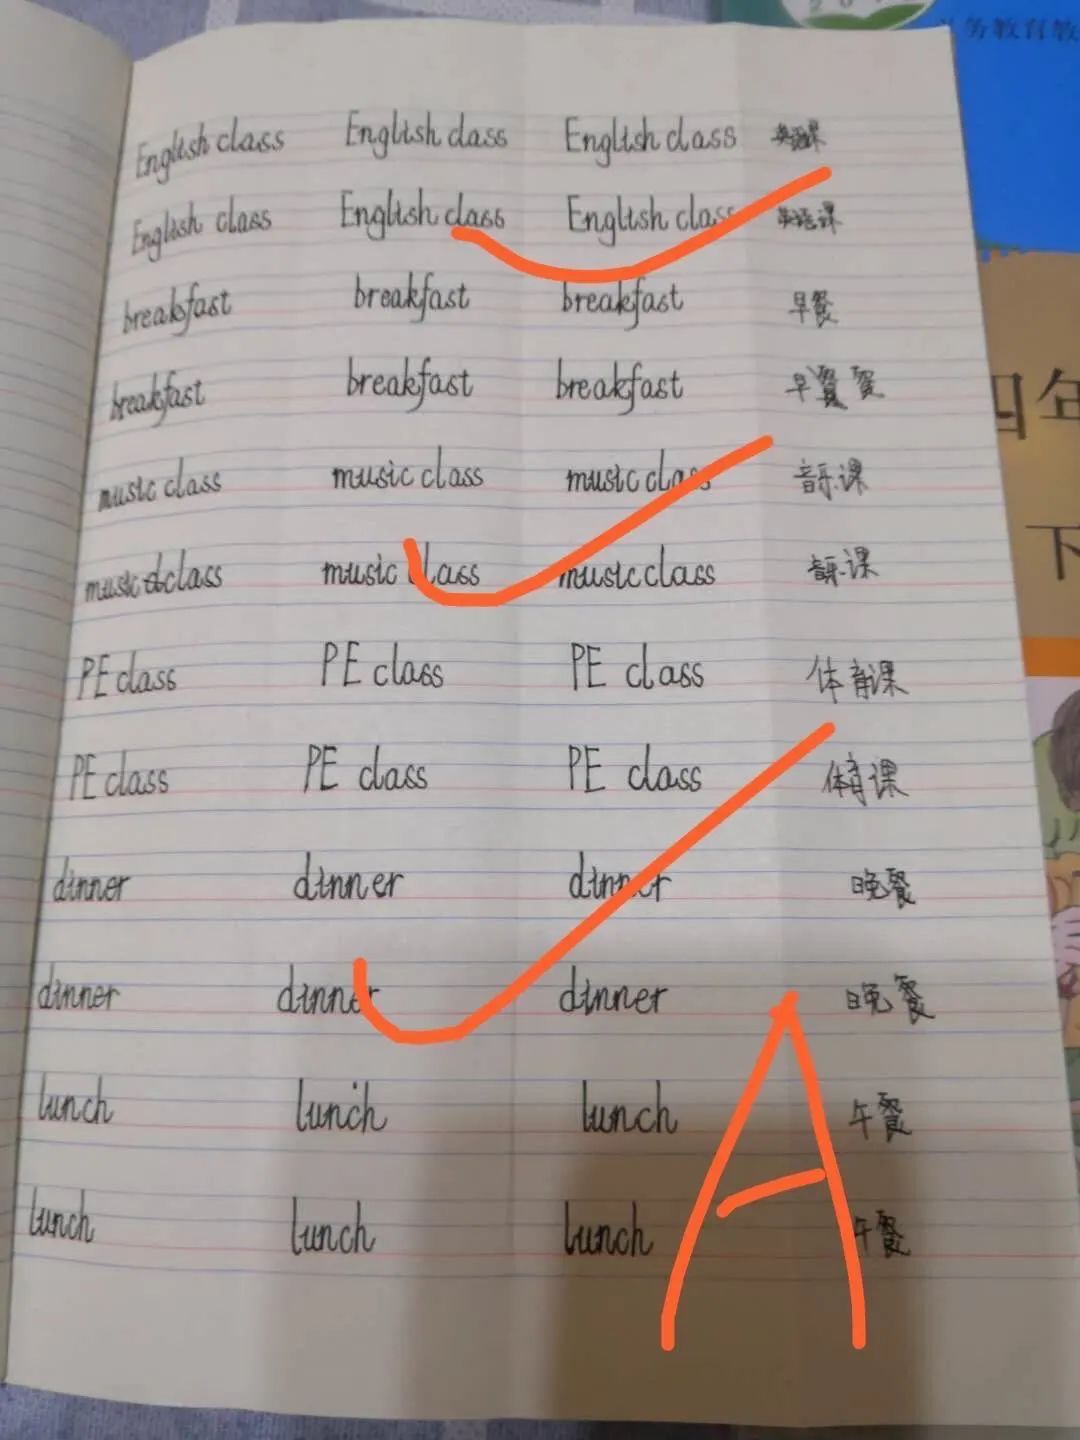 义务教育教
English class English class English class 英语课
English class English class English class 英语课
breakfast breakfast breakfast 早餐
breakfast breakfast breakfast 早餐 餐
四年
music class music class music class 音乐课
下
music class music class music class 音乐课
PE class PE class PE class 体育课
PE class PE class PE class 体育课
dinner dinner dinner 晚餐
dinner dinner dinner 晚餐
lunch lunch lunch 午餐
lunch lunch lunch 午餐
A